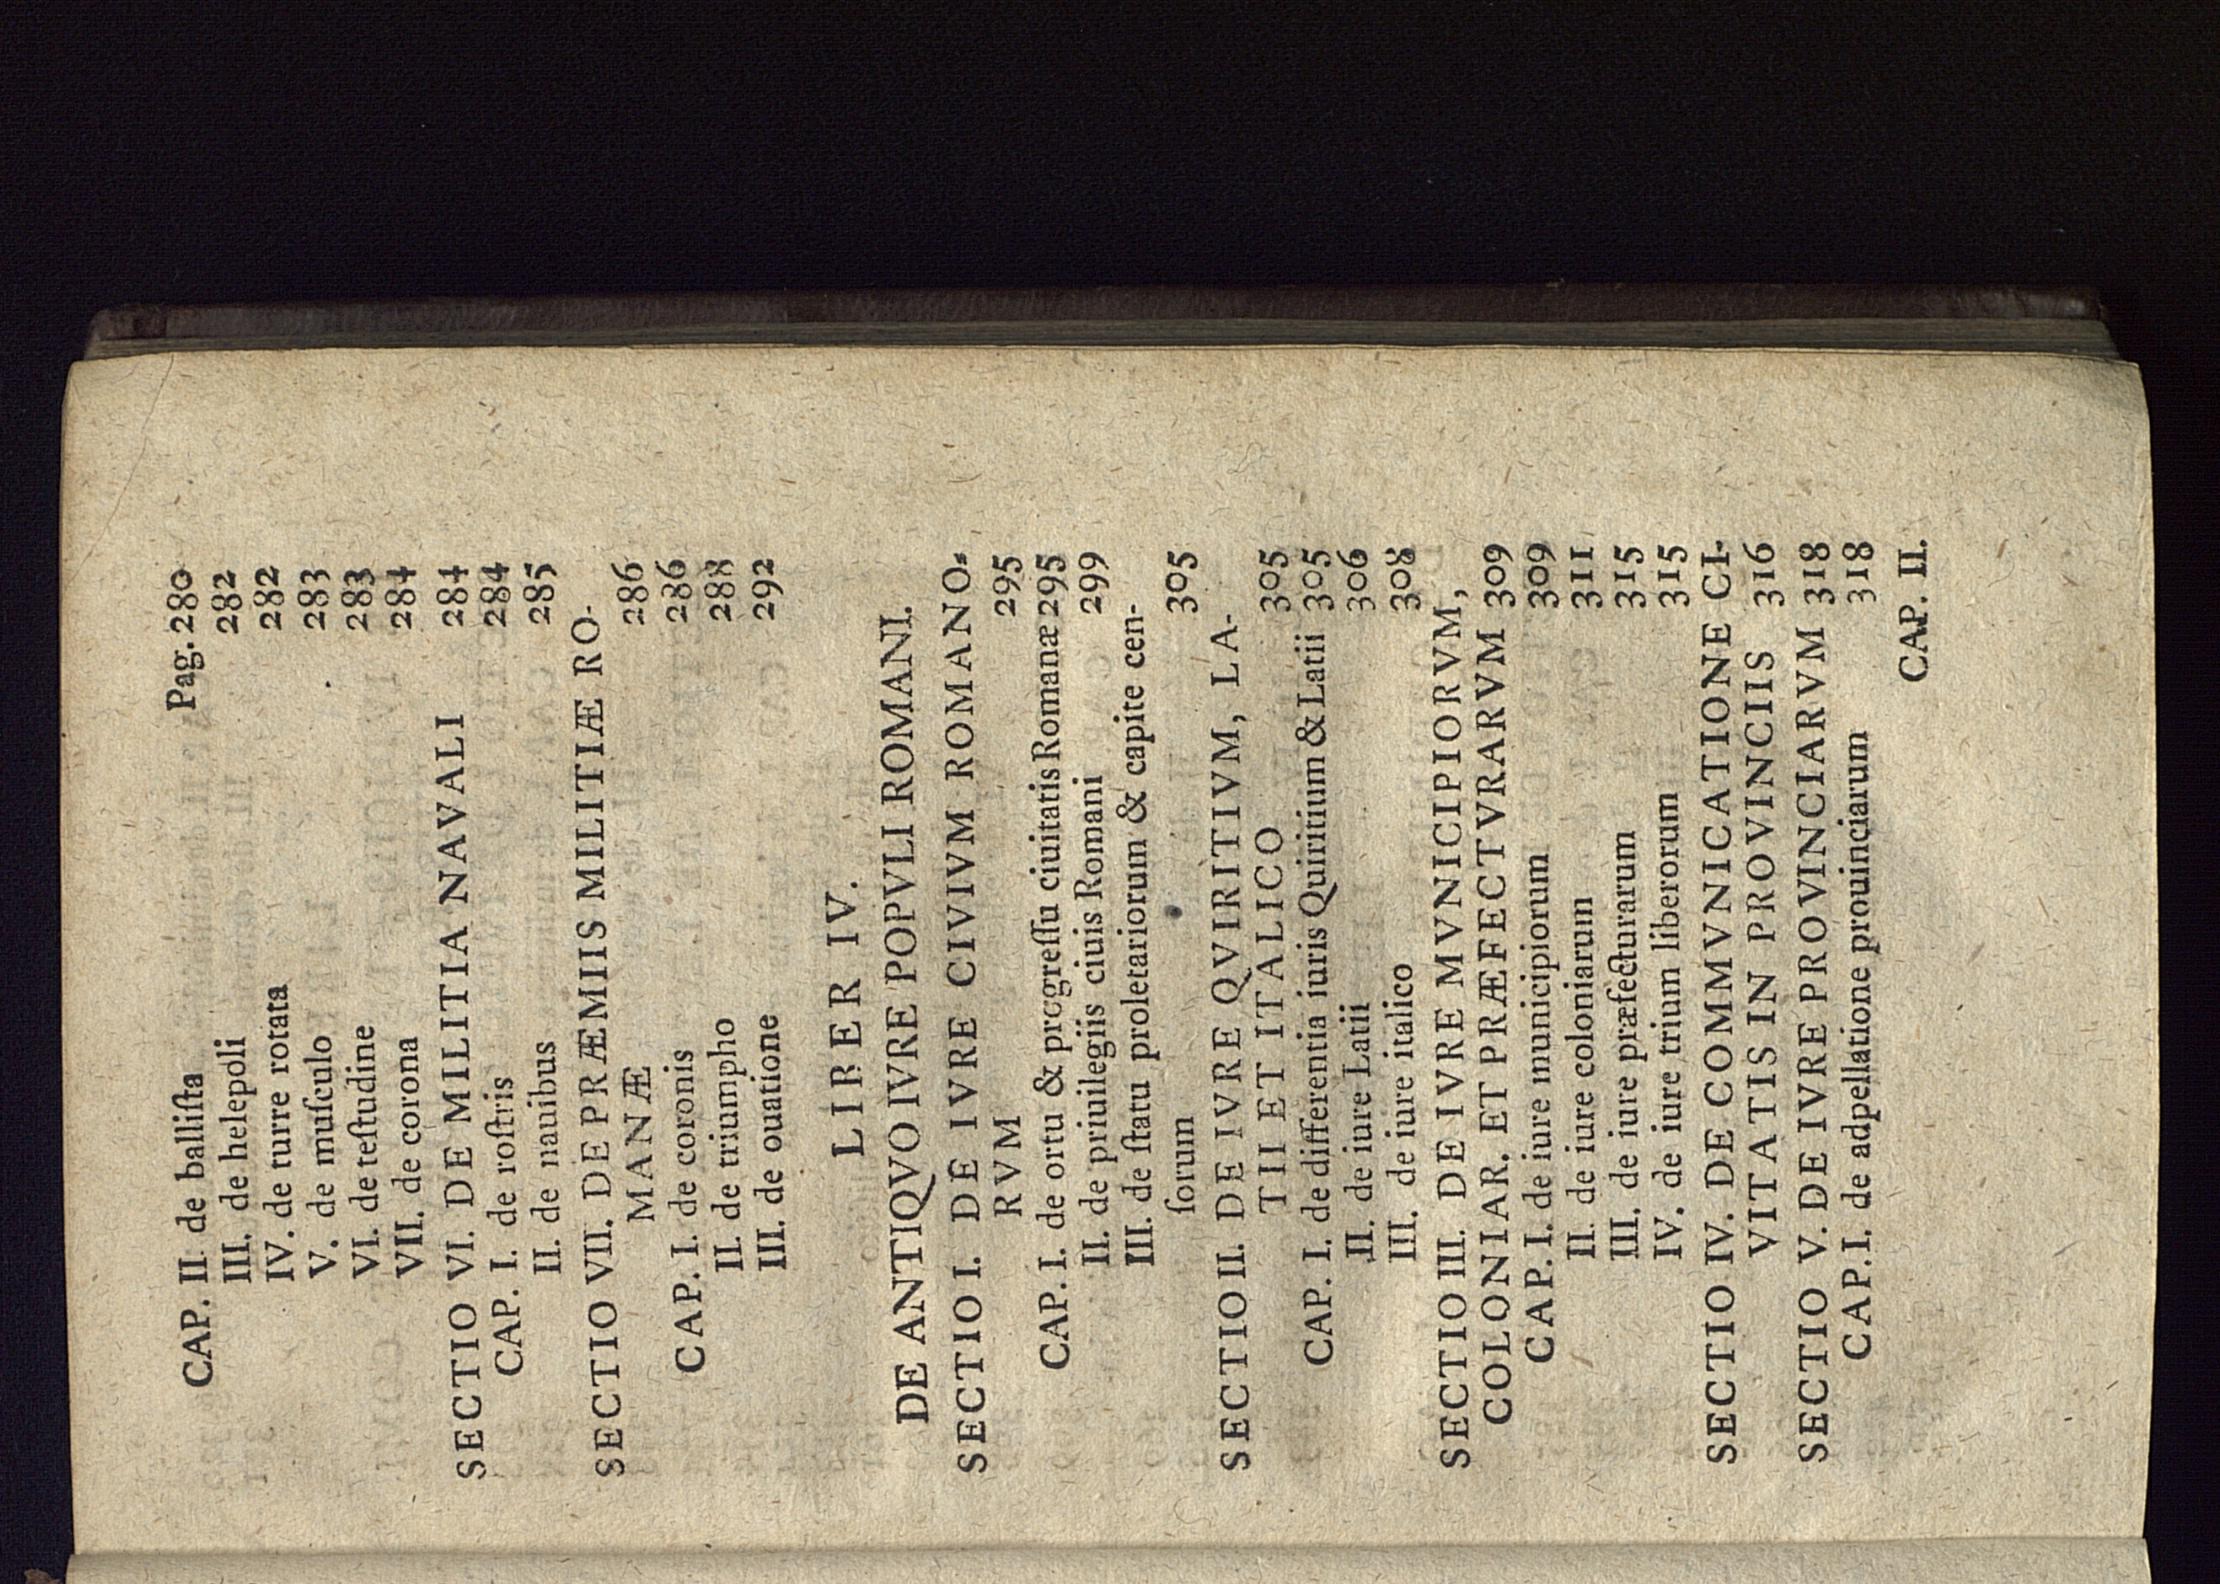 CAP. II. de balliſta Pag. 280
III. de helepoli 282
IV. de turre rotata 282
V. de muſculo 283
VI. de teſtudine 283
VII. de corona 284
SECTIO VI. DE MILITIA NAVALI 284
CAP. I. de roſtris 284
II. de nauibus 285
SECTIO VII. DE PRÆMIIS MILITIÆ RO-
MANÆ 286
CAP. I. de coronis 286
II. de triumpho 288
III. de ouatione 292
LIBER IV.
DE ANTIQVO IVRE POPVLI ROMANI.
SECTIO I. DE IVRE CIVIVM ROMANO-
RVM 295
CAP. I. de ortu & progreſſu ciuitatis Romanæ 295
II. de priuilegiis ciuis Romani 299
III. de ſtatu proletariorum & capite cen-
ſorum 305
SECTIO II. DE IVRE QVIRITIVM, LA-
TII ET ITALICO 305
CAP. I. de differentia iuris Quiritium & Latii 305
II. de iure Latii 306
III. de iure italico 308
SECTIO III. DE IVRE MVNICIPIORVM,
COLONIAR. ET PRÆFECTVRARVM 309
CAP. I. de iure municipiorum 309
II. de iure coloniarum 311
III. de iure præfecturarum 315
IV. de iure trium liberorum 315
SECTIO IV. DE COMMVNICATIONE CI-
VITATIS IN PROVINCIIS 316
SECTIO V. DE IVRE PROVINCIARVM 318
CAP. I. de adpellatione prouinciarum 318
CAP. II.